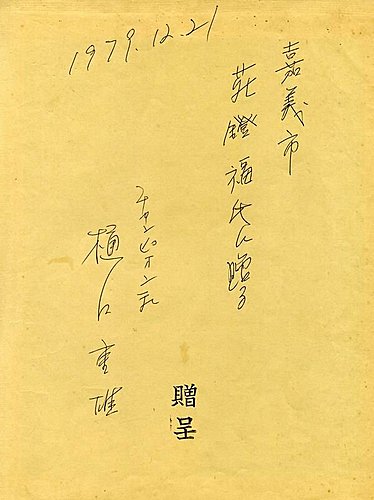 1979.12.21
嘉義市
莊鐙福氏に贈る
チャンピオン
樋口重雄
贈呈